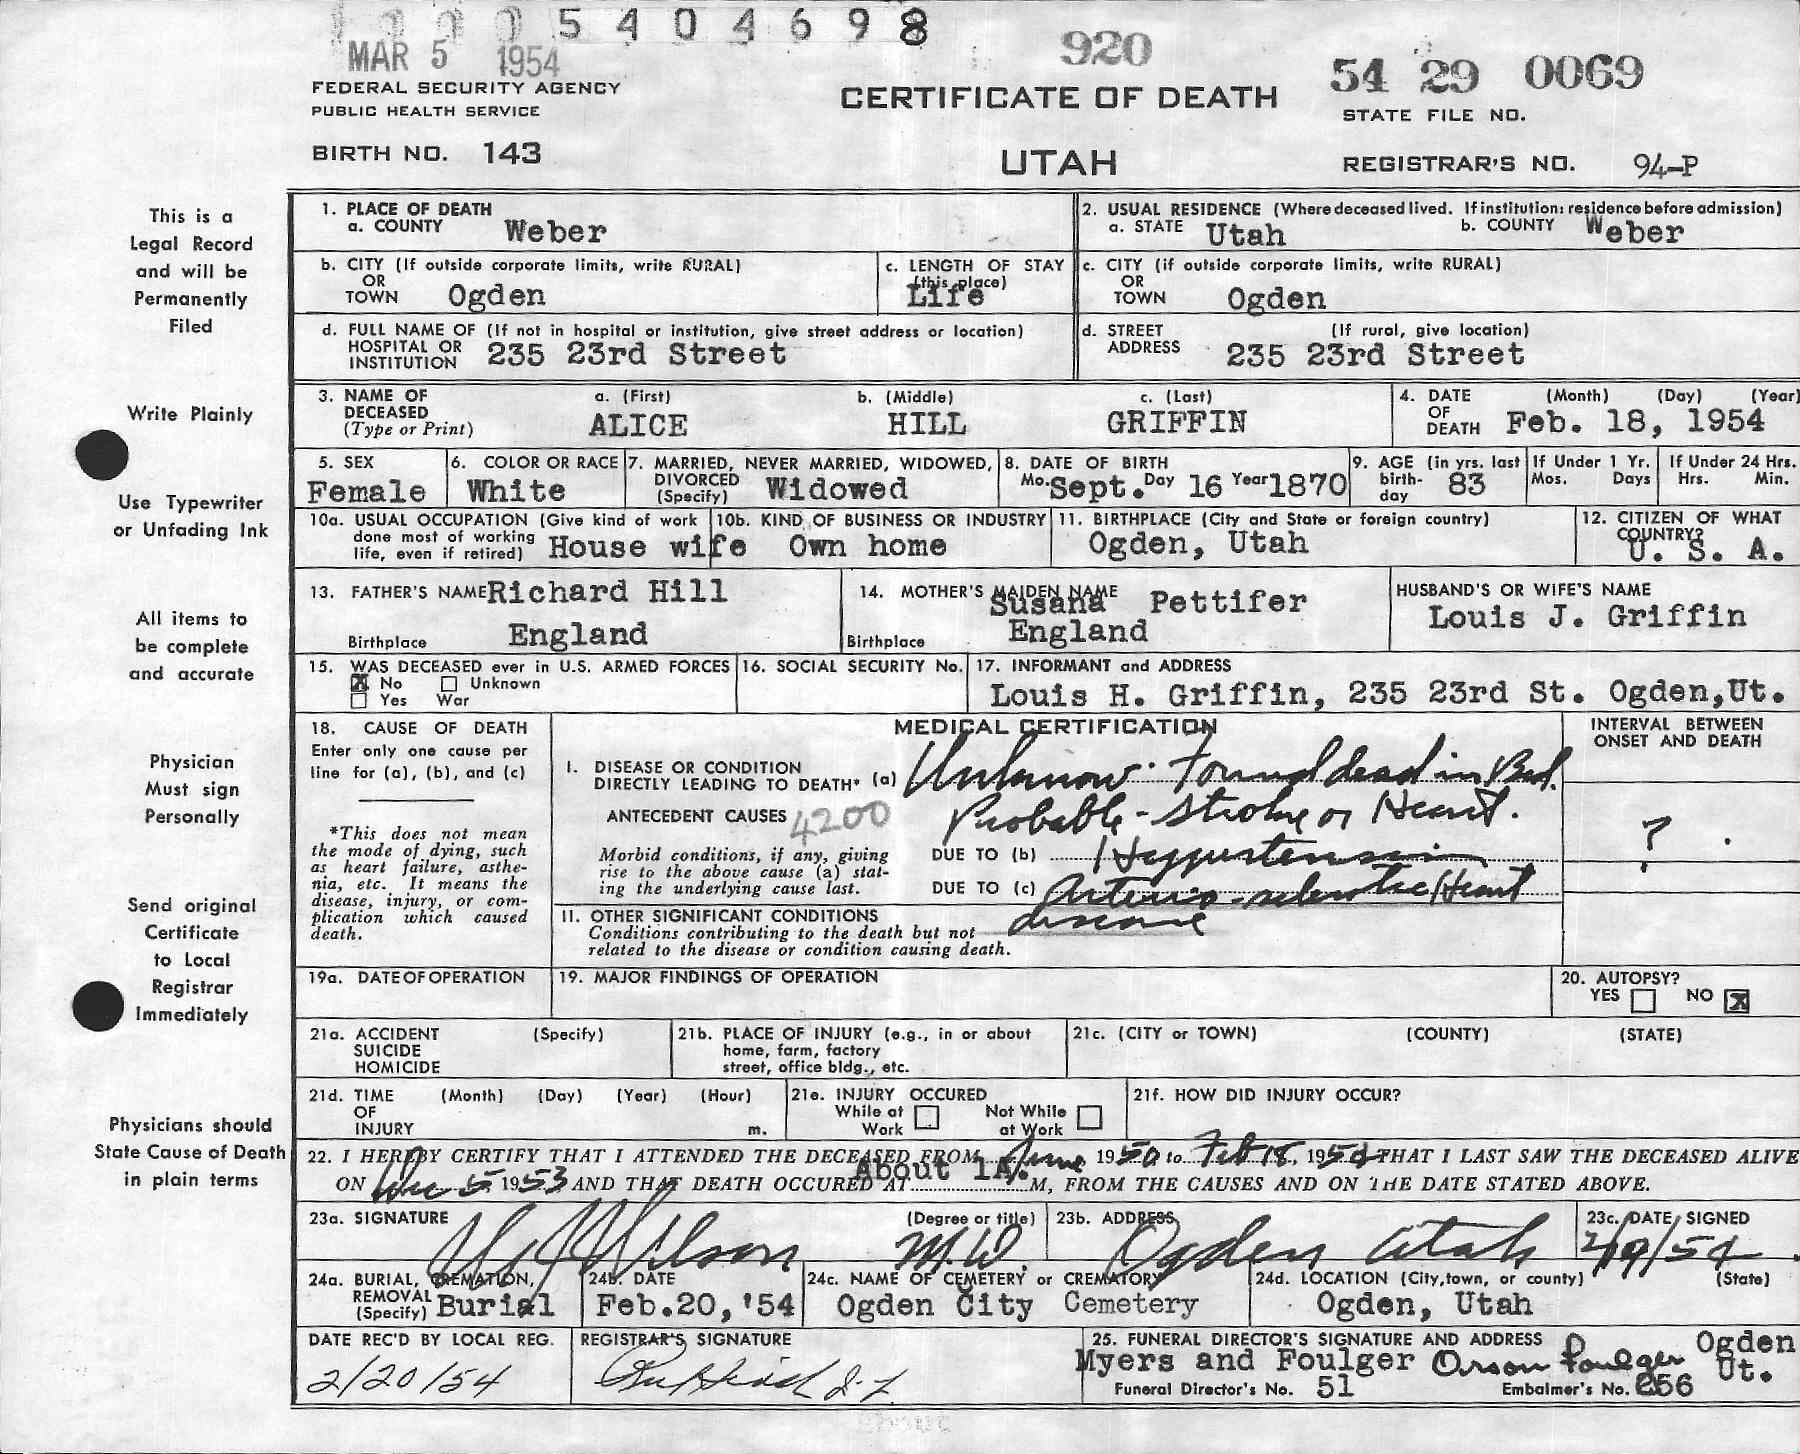 5404698
MAR 5 1954
920
54 29 0069
FEDERAL SECURITY AGENCY
PUBLIC HEALTH SERVICE
CERTIFICATE OF DEATH
STATE FILE NO.
BIRTH NO. 143
UTAH
REGISTRAR'S NO. 94-P
This is a
Legal Record
and will be
Permanently
Filed
Write Plainly
Use Typewriter
or Unfading Ink
All items to
be complete
and accurate
Physician
Must sign
Personally
Send original
Certificate
to Local
Registrar
Immediately
Physicians should
State Cause of Death
in plain terms
1. PLACE OF DEATH
a. COUNTY Weber
2. USUAL RESIDENCE (Where deceased lived. If institution: residence before admission)
a. STATE Utah b. COUNTY Weber
b. CITY (If outside corporate limits, write RURAL)
OR
TOWN Ogden
c. LENGTH OF STAY
(this place)
Life
c. CITY (if outside corporate limits, write RURAL)
OR
TOWN Ogden
d. FULL NAME OF (If not in hospital or institution, give street address or location)
HOSPITAL OR
INSTITUTION 235 23rd Street
d. STREET (If rural, give location)
ADDRESS 235 23rd Street
3. NAME OF
DECEASED
(Type or Print)
a. (First) b. (Middle) c. (Last)
ALICE HILL GRIFFIN
4. DATE (Month) (Day) (Year)
OF
DEATH Feb. 18, 1954
5. SEX
Female
6. COLOR OR RACE
White
7. MARRIED, NEVER MARRIED, WIDOWED,
DIVORCED
(Specify) Widowed
8. DATE OF BIRTH
Mo. Sept. Day 16 Year 1870
9. AGE (in yrs. last
birth-
day 83
If Under 1 Yr.
Mos. Days
If Under 24 Hrs.
Hrs. Min.
10a. USUAL OCCUPATION (Give kind of work
done most of working
life, even if retired) House wife
10b. KIND OF BUSINESS OR INDUSTRY
Own home
11. BIRTHPLACE (City and State or foreign country)
Ogden, Utah
12. CITIZEN OF WHAT
COUNTRY?
U. S. A.
13. FATHER'S NAME Richard Hill
Birthplace England
14. MOTHER'S MAIDEN NAME
Susana Pettifer
Birthplace England
HUSBAND'S OR WIFE'S NAME
Louis J. Griffin
15. WAS DECEASED ever in U.S. ARMED FORCES
X No Unknown
Yes War
16. SOCIAL SECURITY No.
17. INFORMANT and ADDRESS
Louis H. Griffin, 235 23rd St. Ogden,Ut.
18. CAUSE OF DEATH
Enter only one cause per
line for (a), (b), and (c)
*This does not mean
the mode of dying, such
as heart failure, asthe-
nia, etc. It means the
disease, injury, or com-
plication which caused
death.
MEDICAL CERTIFICATION
INTERVAL BETWEEN
ONSET AND DEATH
I. DISEASE OR CONDITION
DIRECTLY LEADING TO DEATH* (a) Unknow. Found dead in Bed.
Probable - stroke or Heart.
ANTECEDENT CAUSES 4200
Morbid conditions, if any, giving
rise to the above cause (a) stat-
ing the underlying cause last.
DUE TO (b) Hypertension
?
DUE TO (c) Arterio-sclerotic Heart
disease
II. OTHER SIGNIFICANT CONDITIONS
Conditions contributing to the death but not
related to the disease or condition causing death.
19a. DATE OF OPERATION
19. MAJOR FINDINGS OF OPERATION
20. AUTOPSY?
YES NO X
21a. ACCIDENT (Specify)
SUICIDE
HOMICIDE
21b. PLACE OF INJURY (e.g., in or about
home, farm, factory
street, office bldg., etc.
21c. (CITY or TOWN) (COUNTY) (STATE)
21d. TIME (Month) (Day) (Year) (Hour)
OF
INJURY m.
21e. INJURY OCCURED
While at
Work
Not While
at Work
21f. HOW DID INJURY OCCUR?
22. I HEREBY CERTIFY THAT I ATTENDED THE DECEASED FROM June 1950 to Feb 18, 1954 THAT I LAST SAW THE DECEASED ALIVE
ON Dec 5 1953 AND THAT DEATH OCCURED AT About 1A. M, FROM THE CAUSES AND ON THE DATE STATED ABOVE.
23a. SIGNATURE (Degree or title)
Wilson M.D.
23b. ADDRESS
Ogden Utah
23c. DATE SIGNED
2/19/54
24a. BURIAL, CREMATION,
REMOVAL
(Specify) Burial
24b. DATE
Feb.20,'54
24c. NAME OF CEMETERY or CREMATORY
Ogden City Cemetery
24d. LOCATION (City,town, or county) (State)
Ogden, Utah
DATE REC'D BY LOCAL REG.
2/20/54
REGISTRAR'S SIGNATURE
25. FUNERAL DIRECTOR'S SIGNATURE AND ADDRESS
Myers and Foulger Orson Foulger Ogden
Ut.
Funeral Director's No. 51 Embalmer's No. 256